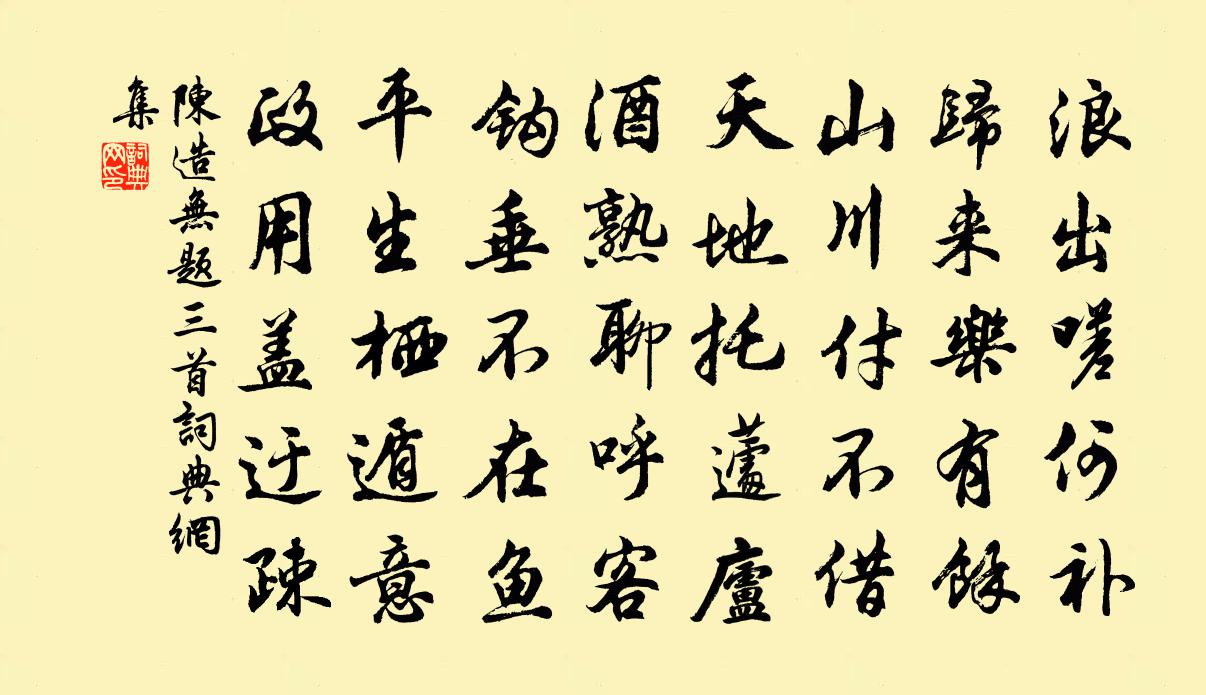 浪出嗟何补
歸来樂有餘
山川付不借
天地托蘧廬
酒熟聊呼客
鈎垂不在鱼
平生栖遁意
政用盖迂疎
陳造無題三首詞典網
集
詞典網印